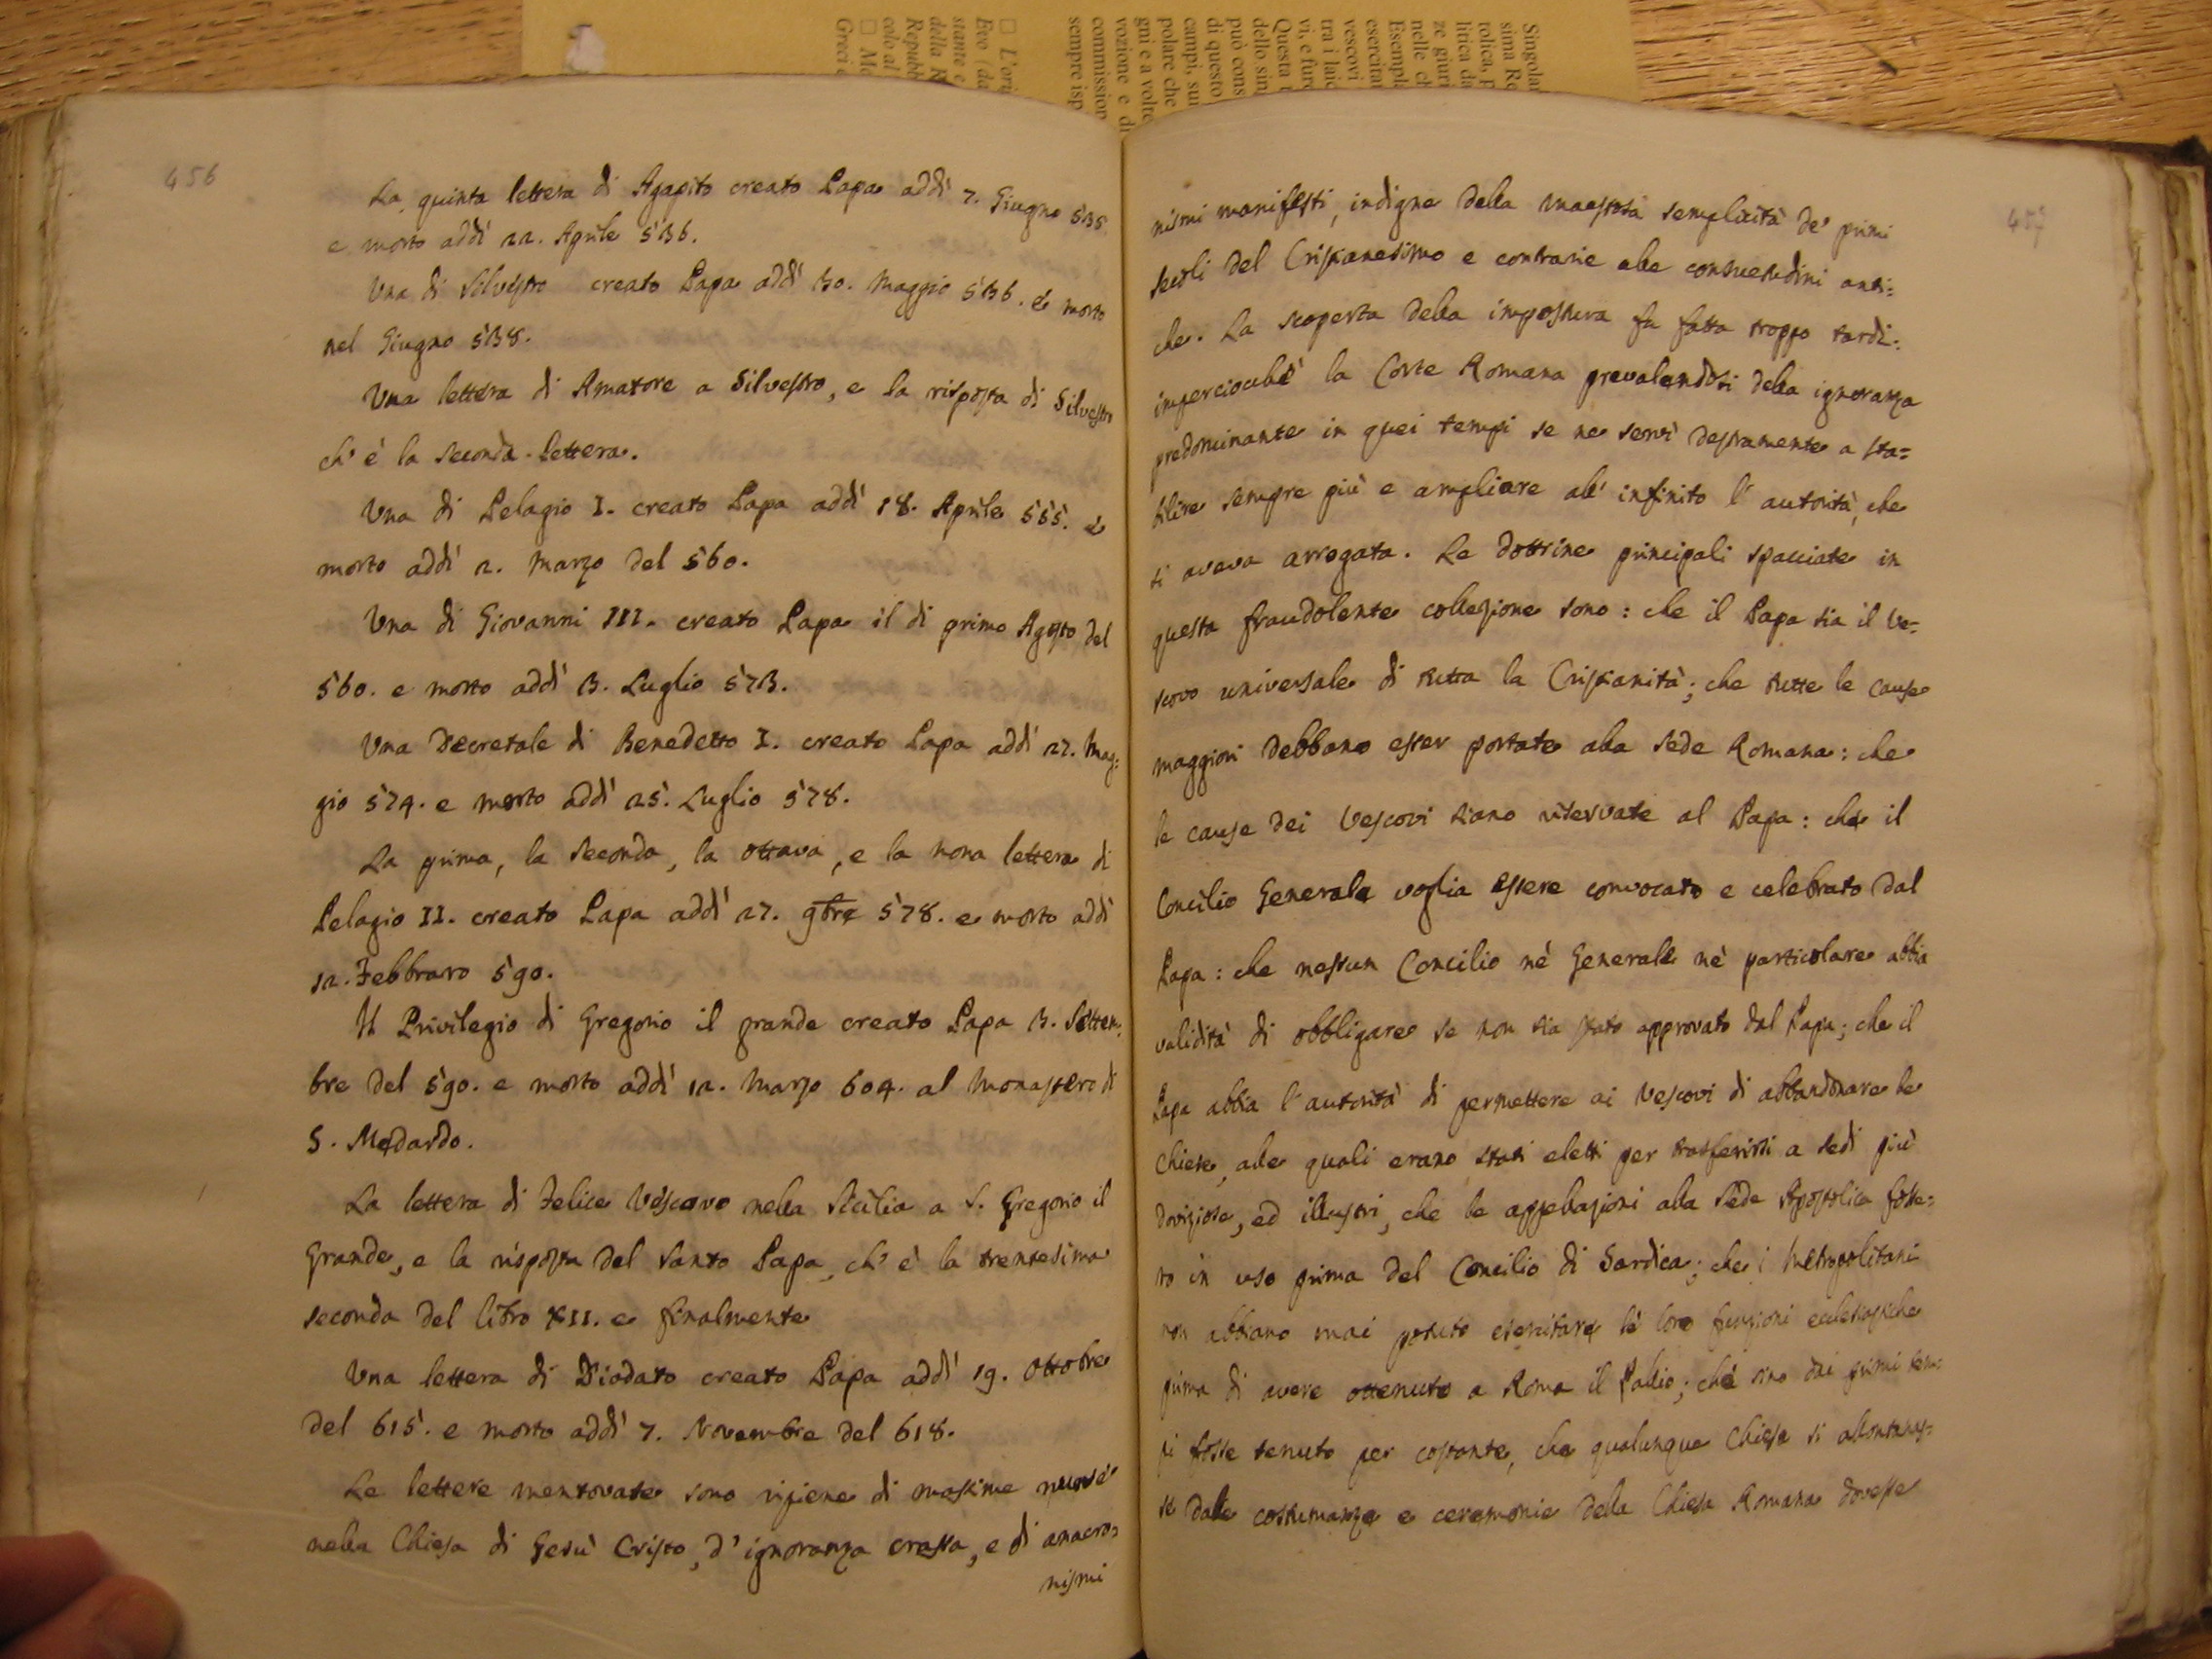 Singola
sima Re
tolica, F
litica da
ze giuri
nelle ch
Esempl
esercitat
vescovi
tra i laic
vi, e fur
Questa t
dello sin
può cons
di questo
campi, su
polare che
gni e a volte
vozione e di
commission
sempre isp
□ L'ori
Evo (da
stante e
della R
Repubb
colo al
□ Me
Greci e
456
La quinta lettera di Agapito creato Papa addì 7. Giugno 535.
e morto addì 22. Aprile 536.
Una di Silvestro creato Papa addì 30. Maggio 536. e morto
nel Giugno 538.
Una lettera di Amatore a Silvestro, e la risposta di Silvestro
ch' è la seconda lettera.
Una di Pelagio I. creato Papa addì 18. Aprile 555. e
morto addì 2. Marzo del 560.
Una di Giovanni III. creato Papa il dì primo Agosto del
560. e morto addì 13. Luglio 573.
Una Decretale di Benedetto I. creato Papa addì 27. Mag:
gio 574. e morto addì 25. Luglio 578.
La prima, la seconda, la ottava, e la nona lettera di
Pelagio II. creato Papa addì 27. 9bre 578. e morto addì
12. Febbraro 590.
Il Privilegio di Gregorio il grande creato Papa 3. Settem:
bre del 590. e morto addì 12. Marzo 604. al Monastero di
S. Medardo.
La lettera di Felice Vescovo nella Sicilia a S. Gregorio il
Grande, e la risposta del Santo Papa, ch' è la trentesima
seconda del libro XII. e finalmente
Una lettera di Diodato creato Papa addì 19. Ottobre
del 615. e morto addì 7. Novembre del 618.
Le lettere mentovate sono ripiene di massime nuove
nella Chiesa di Gesù Cristo, d' ignoranza crassa, e di anacro:
nismi
457
nismi manifesti, indigne della maestosa semplicità de' primi
secoli del Cristianesimo e contrarie alle consuetudini anti:
che. La scoperta della impostura fu fatta troppo tardi:
imperciocchè la Corte Romana prevalendosi della ignoranza
predominante in quei tempi se ne servì destramente a sta=
bilire sempre più e ampliare all' infinito l' autorità, che
si aveva arrogata. Le dottrine principali spacciate in
questa fraudolente collezione sono: che il Papa sia il Ve=
scovo universale di tutta la Cristianità; che tutte le cause
maggiori debbano esser portate alla Sede Romana: che
le cause dei Vescovi siano riservate al Papa: che il
Concilio Generale voglia essere convocato e celebrato dal
Papa: che nessun Concilio nè Generale nè particolare abbia
validità di obbligare se non sia stato approvato dal Papa; che il
Papa abbia l' autorità di permettere ai Vescovi di abbandonare le
Chiese, alle quali erano stati eletti per trasferirsi a sedi più
doviziose, ed illustri, che le appellazioni alla Sede Apostolica fosse=
ro in uso prima del Concilio di Sardica; che i Metropolitani
non abbiano mai potuto esercitare le loro funzioni ecclesiastiche
prima di avere ottenuto a Roma il Pallio; che sino dai primi tem=
pi fosse tenuto per costante, che qualunque Chiesa si allontanas=
se dalle costumanze e ceremonie della Chiesa Romana dovesse